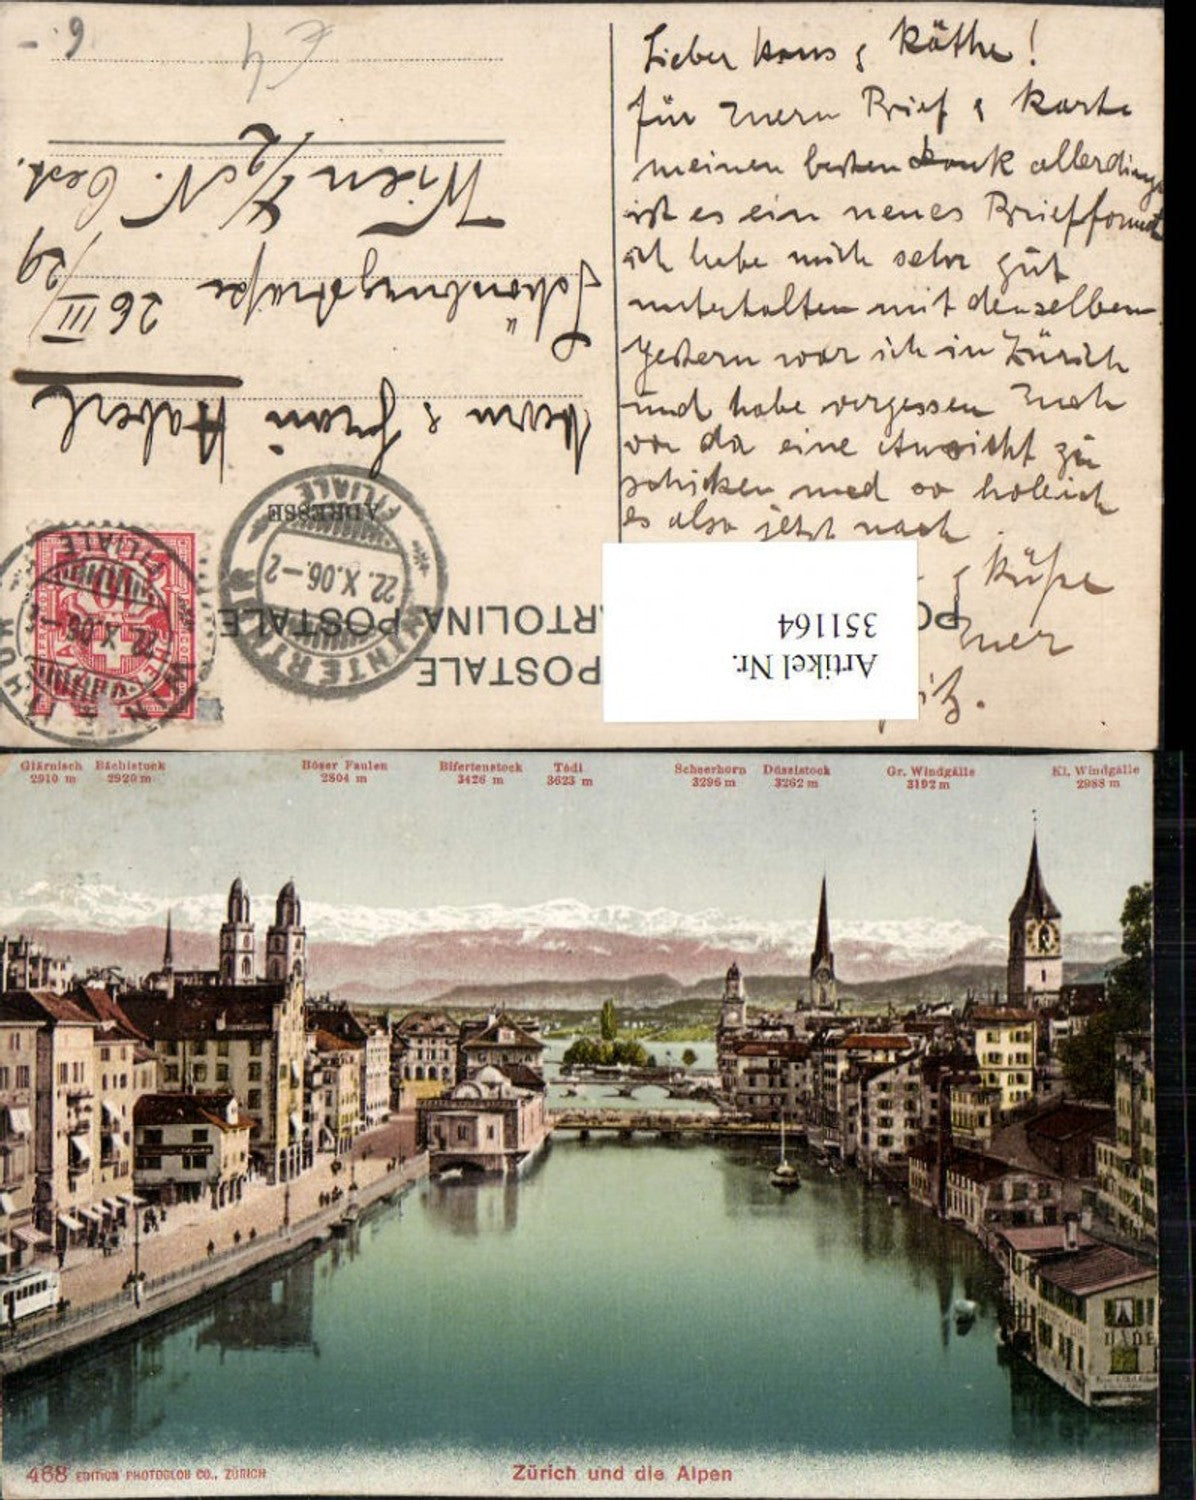 Lieber Hans & Käthe!
für Euern Brief & Karte
meinen besten Dank allerdings
ist es ein neues Briefformat
ich habe mich sehr gut
unterhalten mit denselben
gestern war ich in Zürich
und habe vergessen Euch
von da eine Ansicht zu
schicken und so hole ich
es also jetzt nach
& Küße
Euer
Artikel Nr.
351164
POSTALE
CARTOLINA POSTALE
ADRESSE
WINTERTHUR
FILIALE
22.X.06.-2
WINTERTHUR
FILIALE
22.X.06.-
10
Herrn & Frau Haberl
Schönburgstraße 26 III/29
Wien 4/2 N. Oest.
6.-
Glärnisch
2910 m
Bächistock
2920 m
Böser Faulen
2804 m
Bifertenstock
3426 m
Tödi
3623 m
Scheerhorn
3296 m
Düssistock
3262 m
Gr. Windgälle
3192 m
Kl. Windgälle
2988 m
468 EDITION PHOTOGLOB CO., ZÜRICH
Zürich und die Alpen